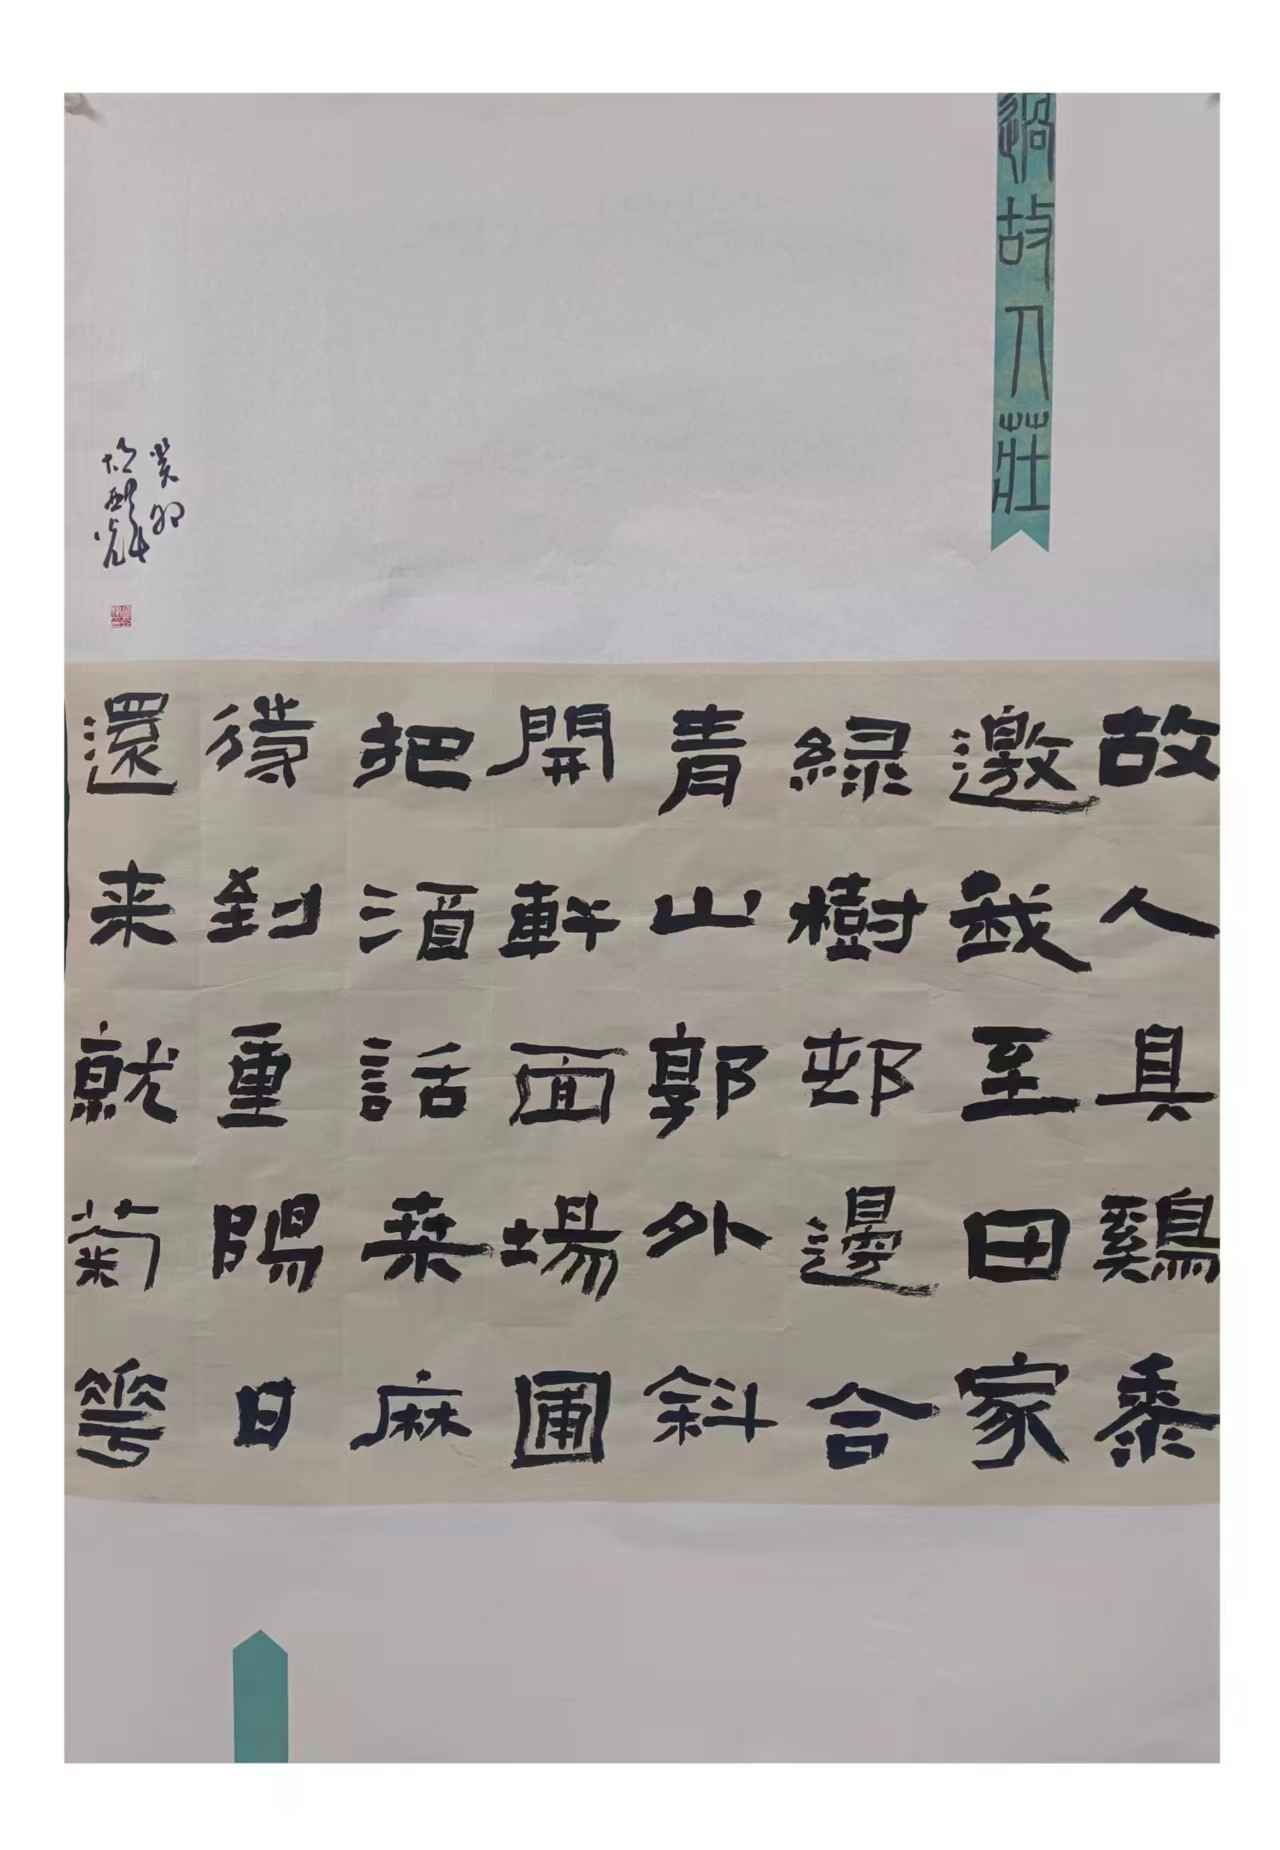 過故人莊
故人具鷄黍
邀我至田家
緑樹邨邊合
青山郭外斜
開軒面場圃
把酒話桒麻
待到重陽日
還来就菊花
癸卯